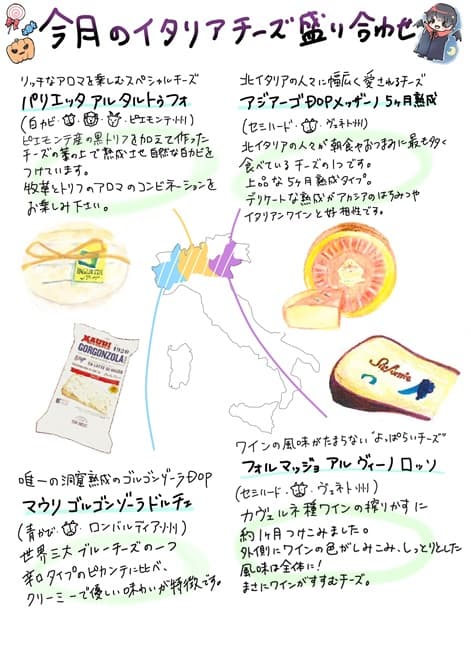 今月のイタリアチーズ盛り合わせ
リッチなアロマを楽しむスペシャルチーズ
パリエッタ アル タルトゥフォ
(白カビ・・ピエモンテ州)
ピエモンテ産の黒トリフを加えて作った
チーズの藁の上で熟成させ自然な白カビを
つけています。
牧草とトリフのアロマのコンビネーションを
お楽しみ下さい。
北イタリアの人々に幅広く愛されるチーズ
アジアーゴDOPメッザーノ 5ヶ月熟成
(セミハード・・ヴェネト州)
北イタリアの人々が朝食やおつまみに最も多く
食べているチーズの1つです。
上品な5ヶ月熟成タイプ。
デリケートな熟成がアカシアのはちみつや
イタリアンワインと好相性です。
MAURI 1920
GORGONZOLA
唯一の洞窟熟成のゴルゴンゾーラDOP
マウリ ゴルゴンゾーラ ドルチェ
(青かび・・ロンバルディア州)
世界三大ブルーチーズの一つ
辛口タイプのピカンテに比べ、
クリーミーで優しい味わいが特徴です。
ワインの風味がたまらない"よっぱらいチーズ"
フォルマッジョ アル ヴィーノ ロッソ
(セミハード・・ヴェネト州)
カヴェルネ種ワインの搾りかすに
約1ヶ月つけこみました。
外側にワインの色がしみこみ、しっとりとした
風味は全体に!
まさにワインがすすむチーズ。